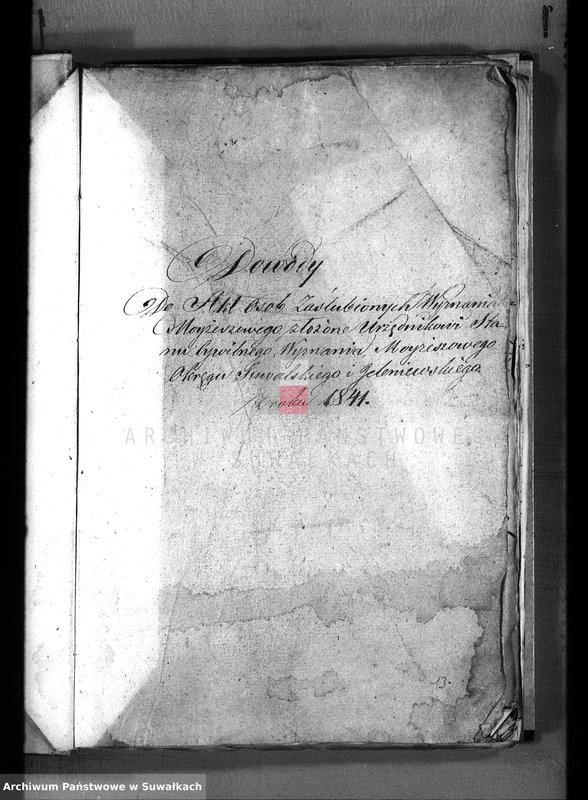 Dowody
Do Akt Osob Zaślubionych Wyznania
Moyżeszowego, złożone Urzędnikowi Sta-
nu Cywilnego Wyznania Moyżeszowego
Okręgu Suwalskiego i Jeleniewskiego
roku 1841.
ARCHIWUM PAŃSTWOWE
W SUWAŁKACH
13.
Archiwum Państwowe w Suwałkach